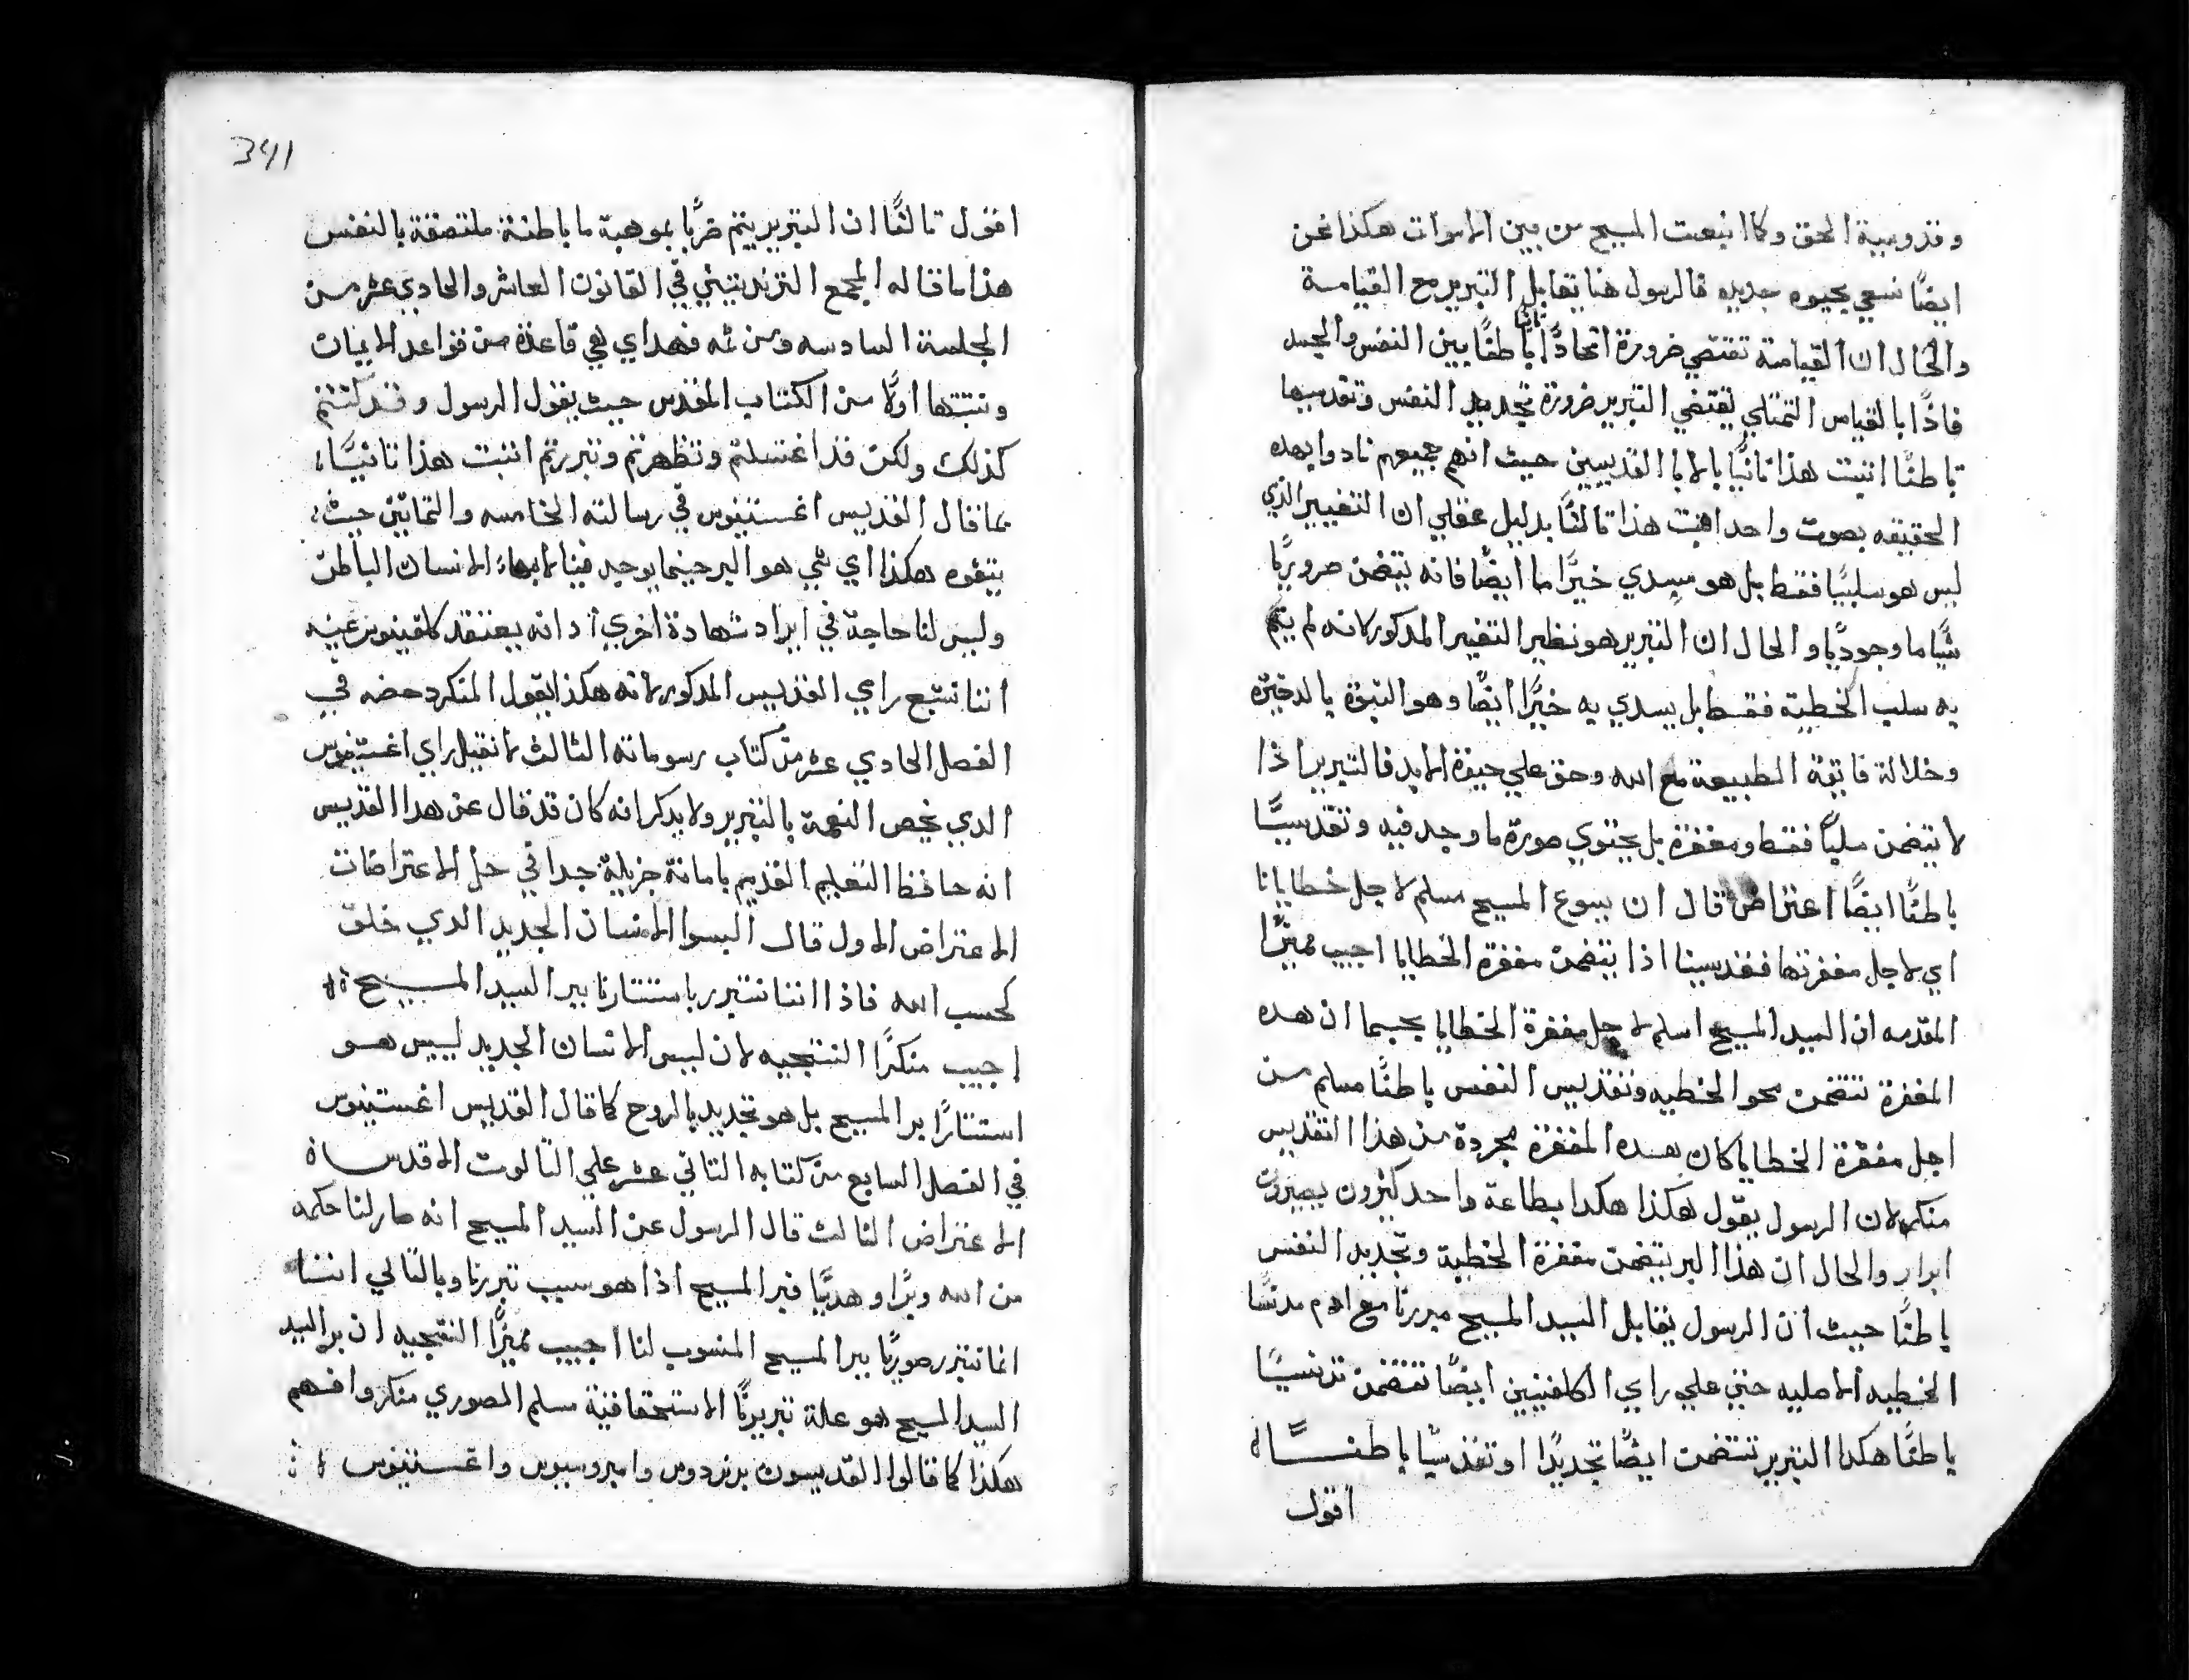 وقدوسية الحق وكما انبعث المسيح من بين الاموات هكذا نحن
ايضًا نسعي بحيوه جديده فالرسول هنا يقابل التبرير مع القيامة
والحال ان القيامة تقتضي ضرورة اتحادًا ثانيا باطنًا بين النفس والجسد
فاذًا بالقياس التمثلي يقتضي التبرير ضرورة تجديد النفس وتقديسها
باطنًا اثبت هذا ثانيًا بالابا القديسين حيث انهم جميعهم نادوا بهده
الحقيقه بصوت واحد اثبت هذا ثالثًا بدليل عقلي ان التغيير الذي
ليس هو سلبيًا فقط بل هو مسدي خيرًا ما ايضًا فانه يتضمن ضروريًا
شيًا ما وجوديًا والحال ان التبرير هو نظير التغير المدكور لانه لم يتم
به سلب الخطية فقط بل يسدي به خيرًا ايضًا وهو البنوة بالدخيرة
وخلالة فايقة الطبيعة مع الله وحق علي حيوة الابد فالتبرير اذا
لا يتضمن سلبًا فقط ومغفرة بل يحتوي صورة ما وجد فيه وتقديسًا
باطنًا ايضًا اعتراض قال ان يسوع المسيح مسلم لاجل خطايانا
اي لاجل مغفرتها فتقديسنا اذا يتضمن مغفرة الخطايا اجيب مميزًا
المقدمه ان السيد المسيح اسلم لاجل مغفرة الخطايا بحسبما ان هده
المغفرة تتضمن محو الخطيه وتقديس النفس باطنًا مسلم من
اجل مغفرة الخطايا كان هده المغفرة مجردة من هذا التقديس
منكر لان الرسول يقول هكذا هكدا بطاعة واحد كثيرون يصيرون
ابرار والحال ان هذا البر يتضمن مغفرة الخطية وتجديد النفس
باطنًا حيث ان الرسول يقابل السيد المسيح مبررنا مع ادم مدنسًا
الخطيه الاصليه حتي علي راي الكلفينيين ايضًا تتضمن تدنيسًا
باطنًا هكدا التبرير تتضمن ايضًا تجديدًا او تقديسًا باطنًا
اقول
341
اقول ثالثًا ان التبرير يتم ضربًا بموهبة ما باطنة ملتصقة بالنفس
هذا ما قاله المجمع الترندنتيني في القانون العاشر والحادي عشر من
الجلسة السادسه ومن ثمه فهداي هي قاعدة من قواعد الايمان
ونثبتها اولًا من الكتاب المقدس حيث يقول الرسول وقد كنتم
كذلك ولكن قد اغتسلتم وتطهرتم وتبررتم اثبت هذا ثانيًا
بما قال القديس اغستينوس في رسالته الخامسه والثمانين حيث
يتفوه هكذا اي شي هو البر حينما يوجد فينا لابهاء الانسان الباطن
وليس لنا حاجة في ايراد شهادة اخري اد انه يعتقد كلفينوس عينه
اننا نتبع راي القديس المدكور لانه هكذا يقول المنكر دحضه في
الفصل الحادي عشر من كتاب رسوماته الثالث لا نقبل راي اغستينوس
الدي يخص النعمة بالتبرير ولا يدكر انه كان قد قال عن هدا القديس
انه حافظ التعليم القديم بامانة جزيلة جدا في حل الاعتراضات
الاعتراض الاول قال البسوا الانسان الجديد الدي خلق
كحسب الله فاذا اننا نتبرر باستتارنا ببر السيد المسيح
اجيب منكرًا النتيجيه لان لبس الانسان الجديد ليس هو
استتارًا ببر المسيح بل هو تجديد بالروح كما قال القديس اغستينوس
في الفصل السابع من كتابه الثاني عشر علي الثالوت الاقدس
الاعتراض الثالث قال الرسول عن السيد المسيح انه صار لنا حكمه
من الله وبرًا وهديًا فبر المسيح اذا هو سبب تبررنا وبالتالي اننا
انما نتبرر صوريًا ببر المسيح المنسوب لنا اجيب مميزًا النتيجيه ان بر السيد
السيد المسيح هو علة تبريرنا الاستحقاقية مسلم الصوري منكر وافهم
هكذا كما قالوا القديسون برنردوس وامبروسيوس واغستينوس